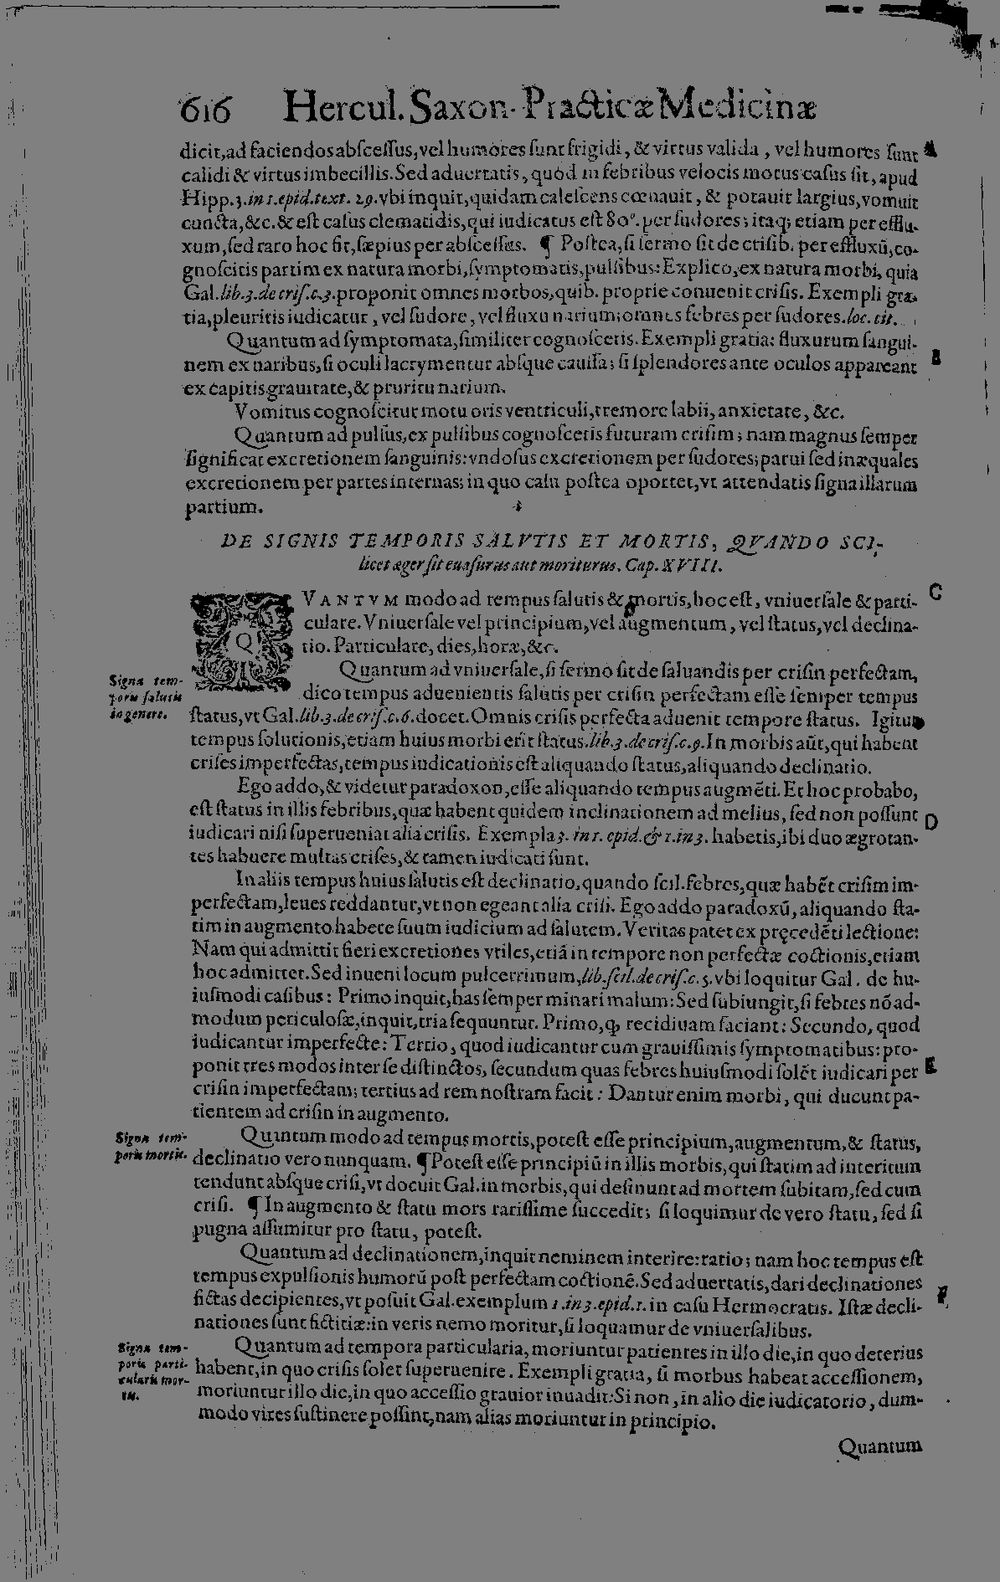 616 Hercul. Saxon. Practicæ Medicinæ
dicit, ad faciendos abſceſſus, vel humores ſunt frigidi, & virtus valida, vel humores ſunt A
calidi & virtus imbecillis. Sed aduertatis, quòd in febribus velocis motus caſus ſit, apud
Hipp. 3. in 1. epid. text. 29. vbi inquit, quidam caleſcens cœnauit, & potauit largius, vomuit
cuncta, &c. & eſt caſus clematidis, qui iudicatus eſt 80°. per ſudores; itaq; etiam per efflu-
xum, ſed raro hoc fit, ſæpius per abſceſſus. ¶ Poſtea, ſi ſermo ſit de criſib. per effluxū, co-
gnoſcitis partim ex natura morbi, ſymptomatis, pulſibus: Explico, ex natura morbi, quia
Gal. lib. 3. de criſ. c. 3. proponit omnes morbos, quib. proprie conuenit criſis. Exempli gra-
tia, pleuritis iudicatur, vel ſudore, vel fluxu narium: omnes febres per ſudores. loc. cit.
Quantum ad ſymptomata, ſimiliter cognoſcetis. Exempli gratia: fluxurum ſangui-
nem ex naribus, ſi oculi lacrymentur abſque cauſſa; ſi ſplendores ante oculos appareant B
ex capitis grauitate, & pruritu narium.
Vomitus cognoſcitur motu oris ventriculi, tremore labii, anxietate, &c.
Quantum ad pulſus, ex pulſibus cognoſcetis futuram criſim; nam magnus ſemper
ſignificat excretionem ſanguinis: vndoſus excretionem per ſudores; parui ſed inæquales
excretionem per partes internas; in quo caſu poſtea oportet, vt attendatis ſigna illarum
partium.
DE SIGNIS TEMPORIS SALVTIS ET MORTIS, QVANDO SCI-
licet æger ſit euaſurus aut moriturus. Cap. XVIII.
QVANTVM modo ad tempus ſalutis & mortis, hoc eſt, vniuerſale & parti- C
culare. Vniuerſale vel principium, vel augmentum, vel ſtatus, vel declina-
tio. Particulare, dies, horæ, &c.
Signa tem-
poris ſalutis
in genere.
Quantum ad vniuerſale, ſi ſermo ſit de ſaluandis per criſin perfectam,
dico tempus aduenientis ſalutis per criſin perfectam eſſe ſemper tempus
ſtatus, vt Gal. lib. 3. de criſ. c. 6. docet. Omnis criſis perfecta aduenit tempore ſtatus. Igitur
tempus ſolutionis, etiam huius morbi erit ſtatus. lib. 3. de criſ. c. 9. In morbis aūt, qui habent
criſes imperfectas, tempus iudicationis eſt aliquando ſtatus, aliquando declinatio.
Ego addo, & videtur paradoxon, eſſe aliquando tempus augmēti. Et hoc probabo,
eſt ſtatus in illis febribus, quæ habent quidem inclinationem ad melius, ſed non poſſunt D
iudicari niſi ſuperueniat alia criſis. Exempla 3. in 1. epid. & 1. in 3. habetis, ibi duo ægrotan-
tes habuere multas criſes, & tamen iudicati ſunt.
In aliis tempus huius ſalutis eſt declinatio, quando ſcil. febres, quæ habēt criſim im-
perfectam, leues reddantur, vt non egeant alia criſi. Ego addo paradoxū, aliquando ſta-
tim in augmento habere ſuum iudicium ad ſalutem. Veritas patet ex pręcedēti lectione:
Nam qui admittit fieri excretiones vtiles, etiā in tempore non perfectæ coctionis, etiam
hoc admittet. Sed inueni locum pulcerrimum, lib. ſcil. de criſ. c. 3. vbi loquitur Gal. de hu-
iuſmodi caſibus: Primo inquit, has ſemper minari malum: Sed ſubiungit, ſi febres nō ad-
modum periculoſæ, inquit, tria ſequuntur. Primo, ꝙ recidiuam faciant: Secundo, quod
iudicantur imperfecte: Tertio, quod iudicantur cum grauiſſimis ſymptomatibus: pro-
ponit tres modos inter ſe diſtinctos, ſecundum quas febres huiuſmodi ſolēt iudicari per E
criſin imperfectam; tertius ad rem noſtram facit: Dantur enim morbi, qui ducunt pa-
tientem ad criſin in augmento.
Signa tem-
poris mortis.
Quantum modo ad tempus mortis, poteſt eſſe principium, augmentum, & ſtatus,
declinatio vero nunquam. ¶ Poteſt eſſe principiū in illis morbis, qui ſtatim ad interitum
tendunt abſque criſi, vt docuit Gal. in morbis, qui deſinunt ad mortem ſubitam, ſed cum
criſi. ¶ In augmento & ſtatu mors rariſſime ſuccedit; ſi loquimur de vero ſtatu, ſed ſi
pugna aſſumitur pro ſtatu, poteſt.
Quantum ad declinationem, inquit neminem interire: ratio; nam hoc tempus eſt
tempus expulſionis humorū poſt perfectam coctionē. Sed aduertatis, dari declinationes
fictas decipientes, vt poſuit Gal. exemplum 1. in 3. epid. 1. in caſu Hermocratis. Iſtæ decli- F
nationes ſunt fictitiæ: in veris nemo moritur, ſi loquamur de vniuerſalibus.
Signa tem-
poris parti-
cularis mor-
tis.
Quantum ad tempora particularia, moriuntur patientes in illo die, in quo deterius
habent, in quo criſis ſolet ſuperuenire. Exempli gratia, ſi morbus habeat acceſſionem,
moriuntur illo die, in quo acceſſio grauior inuadit: Si non, in alio die iudicatorio, dum-
modo vires ſuſtinere poſſint, nam alias moriuntur in principio.
Quantum